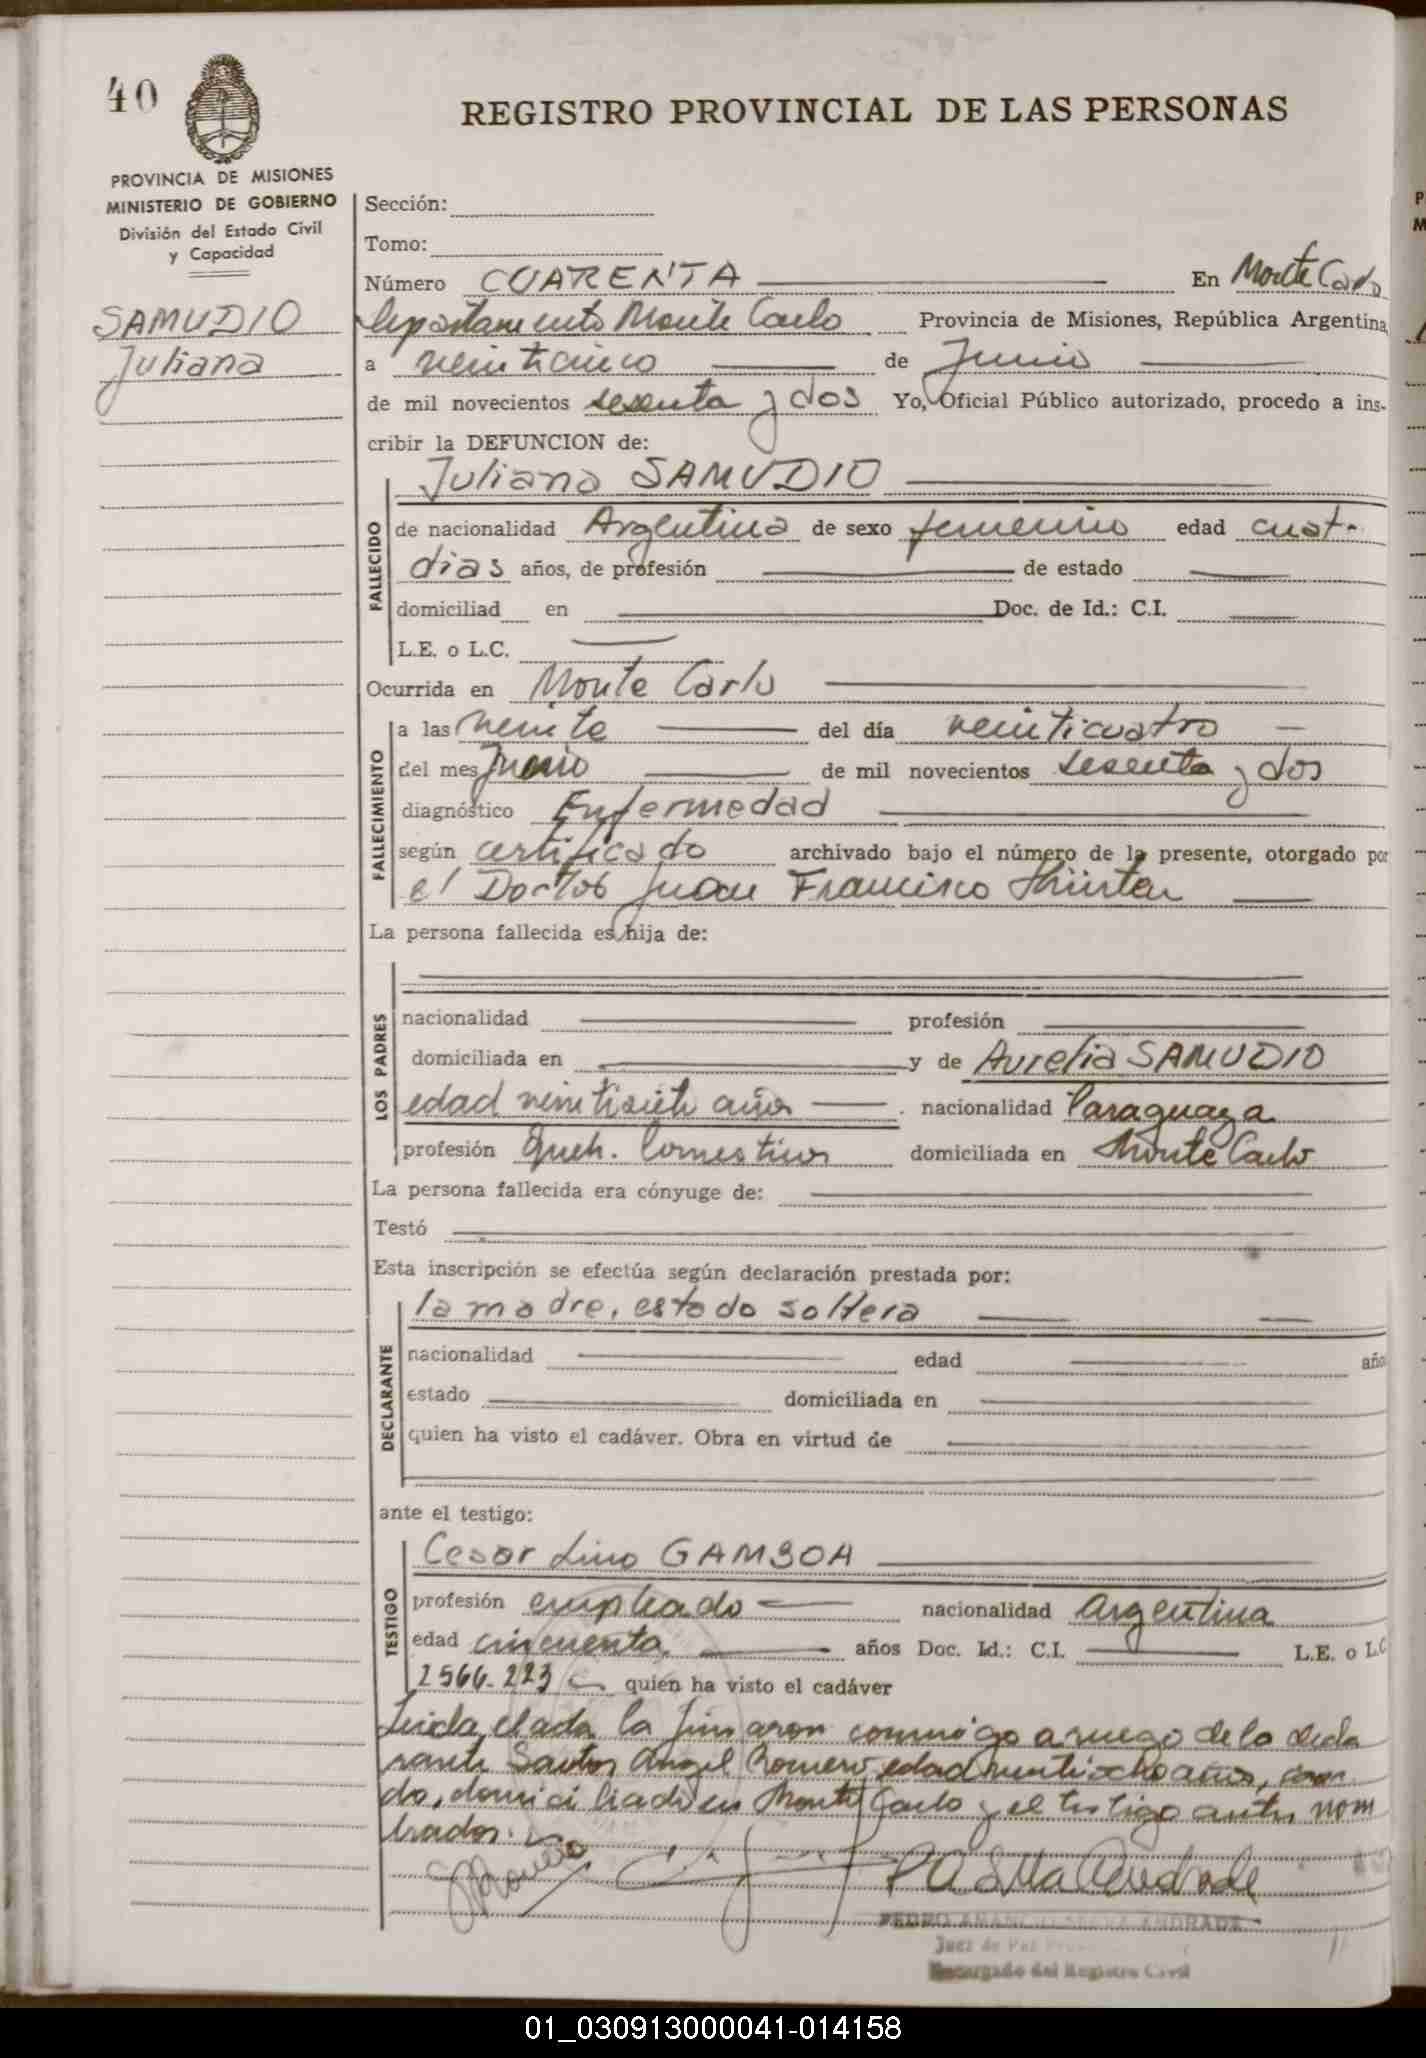 40
REGISTRO PROVINCIAL DE LAS PERSONAS
PROVINCIA DE MISIONES
MINISTERIO DE GOBIERNO
División del Estado Civil
y Capacidad
SAMUDIO
Juliana
Sección:
Tomo:
Número CUARENTA En Monte Carlo
Departamento Monte Carlo Provincia de Misiones, República Argentina,
a veinticinco de Junio
de mil novecientos sesenta y dos Yo, Oficial Público autorizado, procedo a ins-
cribir la DEFUNCION de:
Juliana SAMUDIO
FALLECIDO
de nacionalidad Argentina de sexo femenino edad cuat-
dias años, de profesión de estado
domiciliad en Doc. de Id.: C.I.
L.E. o L.C.
Ocurrida en Monte Carlo
FALLECIMIENTO
a las veinte del día veinticuatro
del mes Junio de mil novecientos sesenta y dos
diagnóstico Enfermedad
según certificado archivado bajo el número de la presente, otorgado por
el Doctor Juan Francisco
La persona fallecida es hija de:
LOS PADRES
nacionalidad profesión
domiciliada en y de Aurelia SAMUDIO
edad veintisiete años nacionalidad Paraguaya
profesión Queh. Domesticos domiciliada en Monte Carlo
La persona fallecida era cónyuge de:
Testó
Esta inscripción se efectúa según declaración prestada por:
DECLARANTE
la madre, estado soltera
nacionalidad edad año
estado domiciliada en
quien ha visto el cadáver. Obra en virtud de
ante el testigo:
TESTIGO
Cesar Lino GAMBOA
profesión empleado nacionalidad Argentina
edad cincuenta años Doc. Id.: C.I. L.E. o L.C
2566.223 quien ha visto el cadáver
Leida el acta la firmaron conmigo a ruego de la decla
rante Santos Angel Romero edad veintiocho años,
do, domiciliado en Monte Carlo y el testigo antes nom
brados.
PEDRO AMANCIO ANDRADE
Juez de Paz
Encargado del Registro Civil
01_030913000041-014158